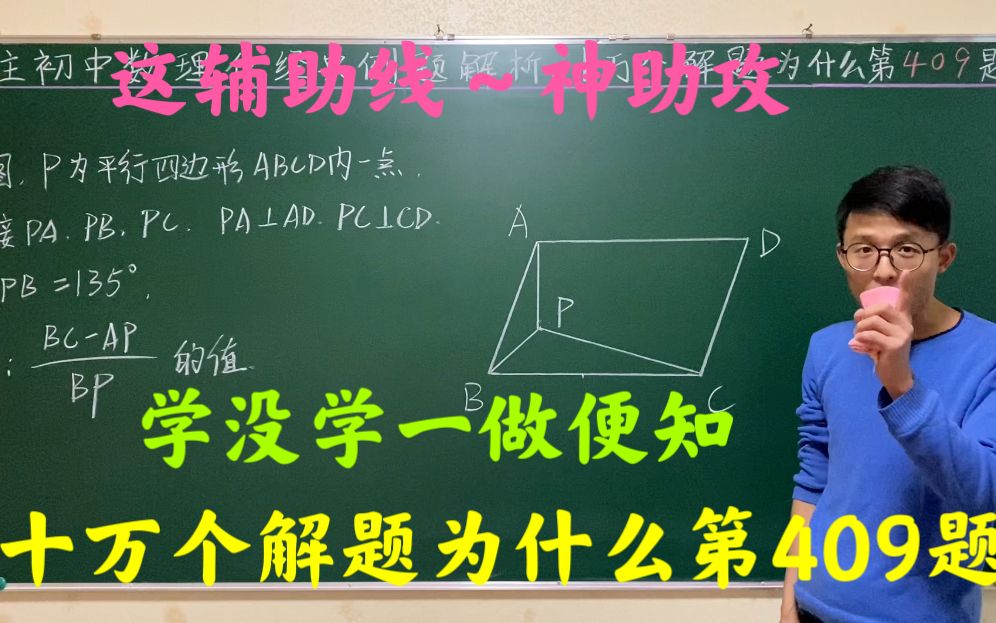 主初中数理 题解析 万 解题为什么第409题
这辅助线~神助攻
图,P为平行四边形ABCD内一点,
接PA、PB、PC、PA⊥AD、PC⊥CD.
PB=135°,
: BC-AP
BP
的值.
A
D
P
B
C
学没学一做便知
十万个解题为什么第409题